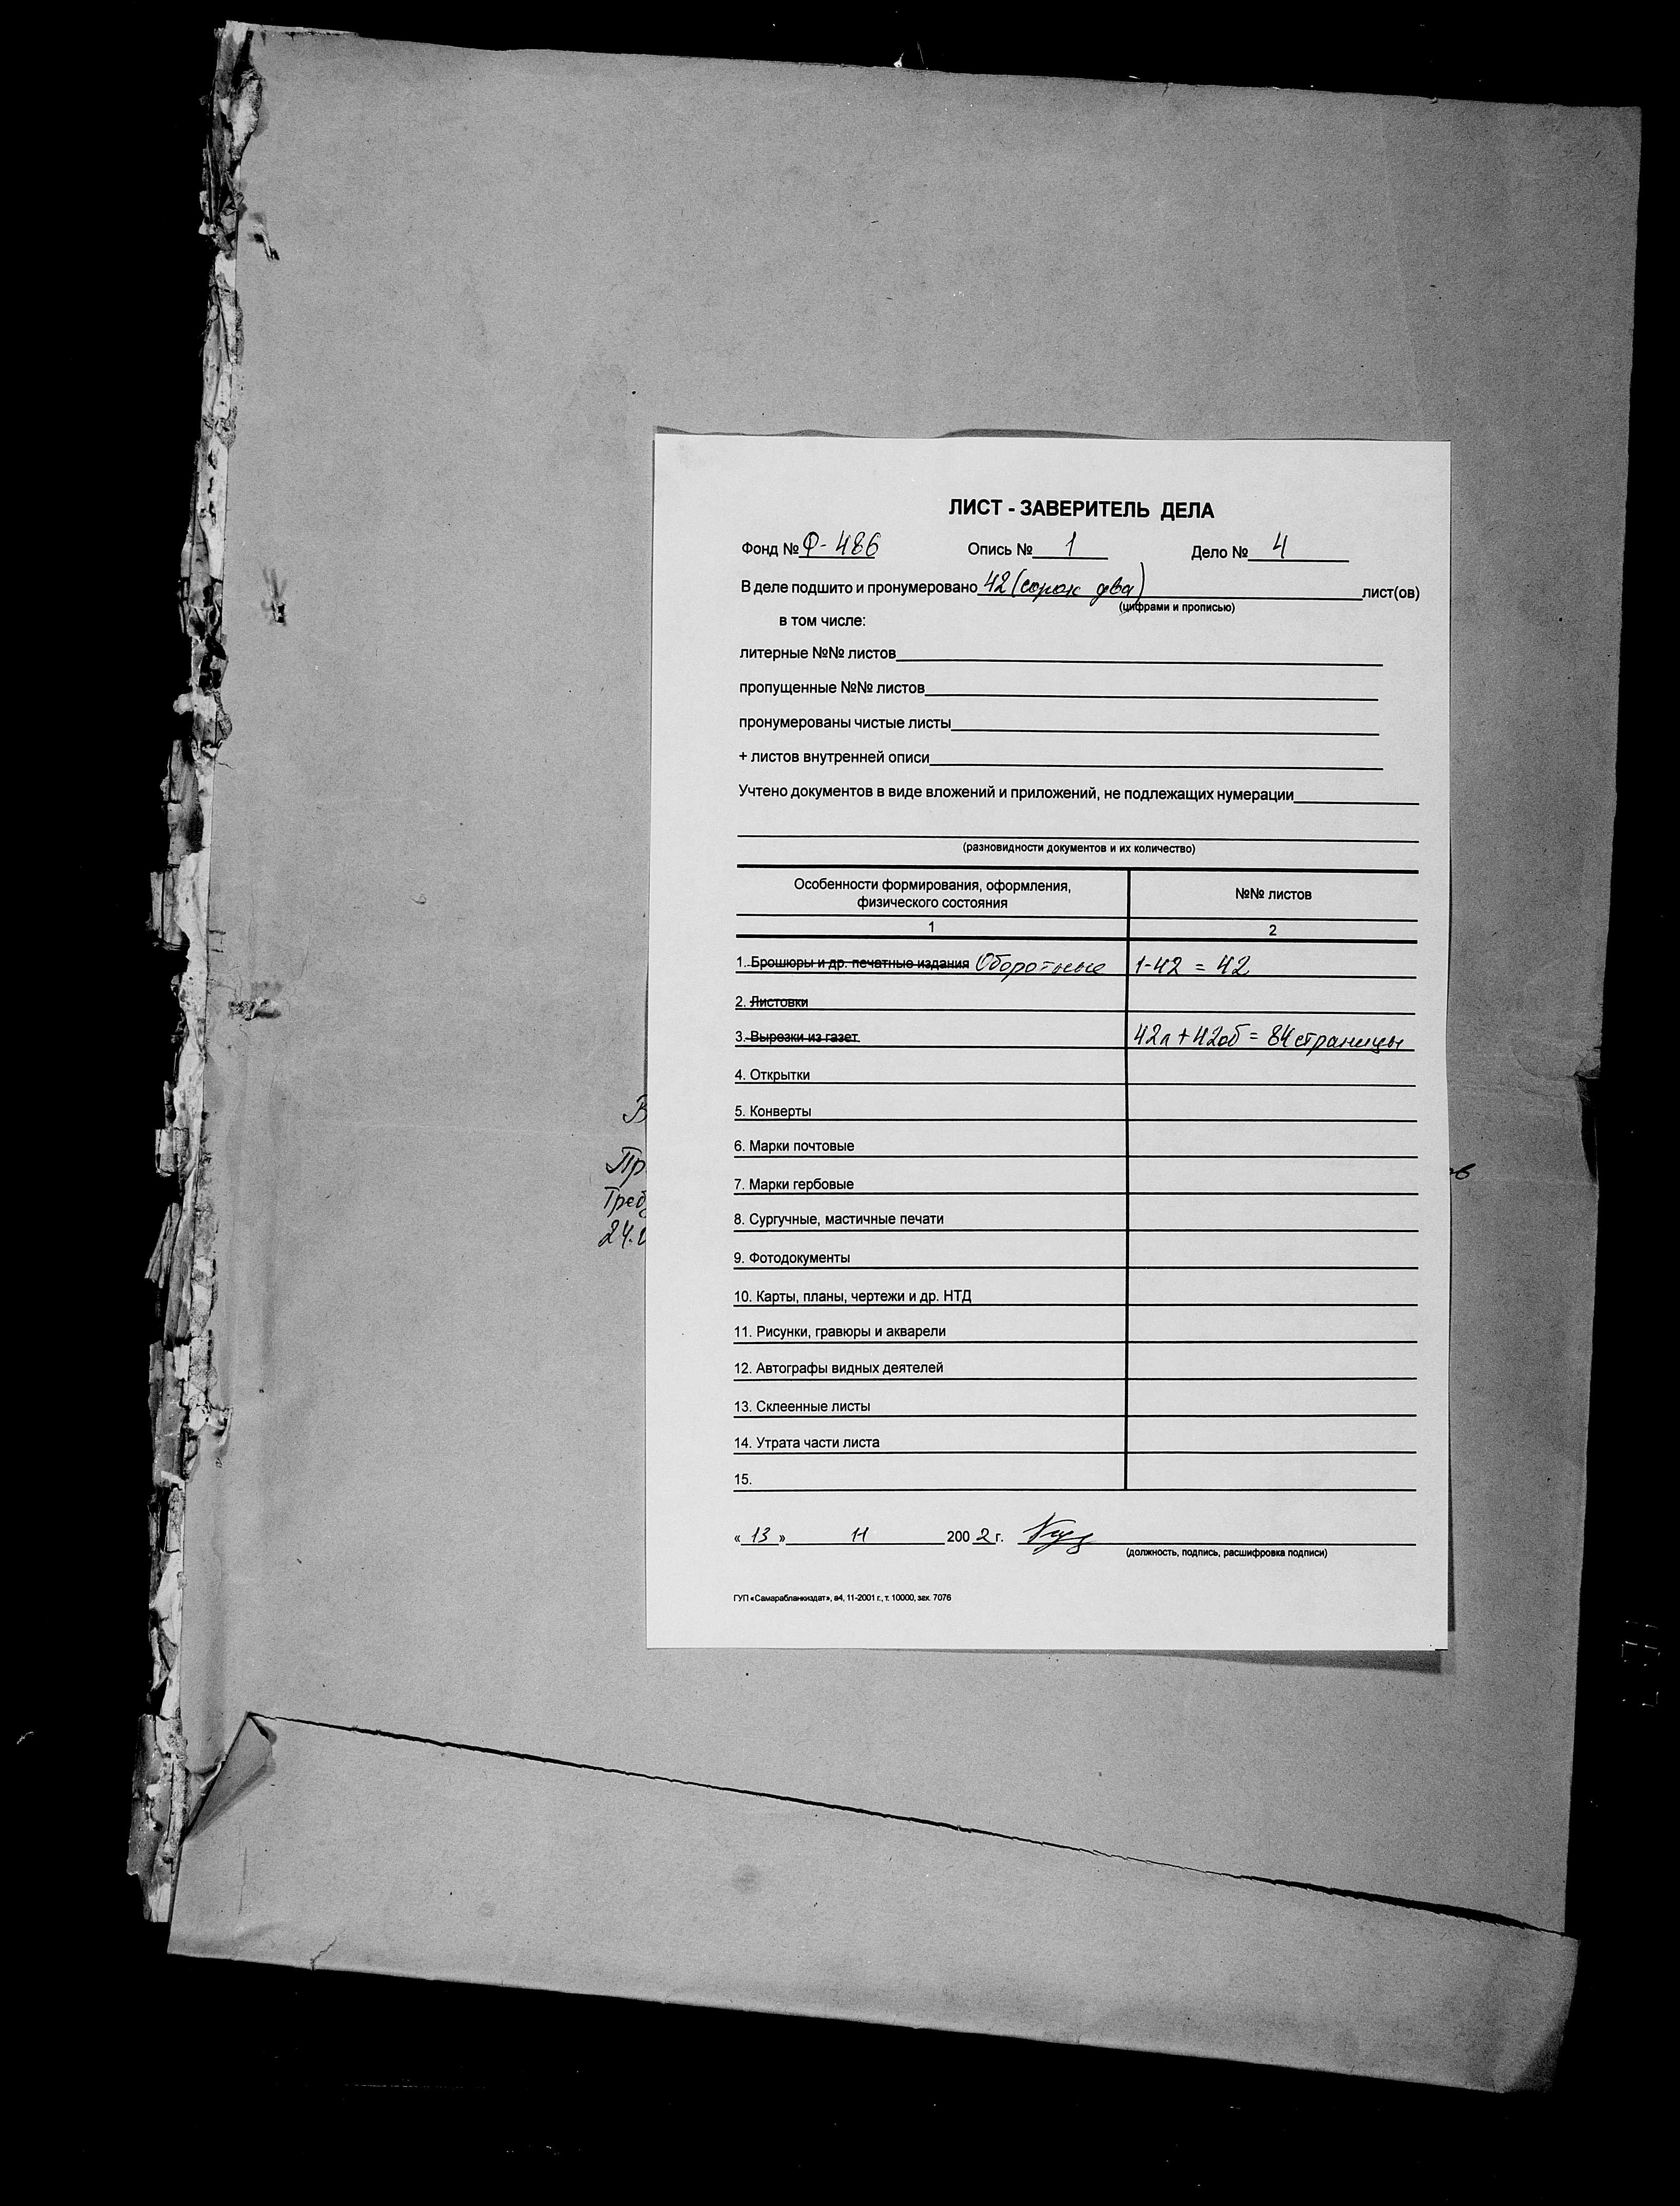 ЛИСТ - ЗАВЕРИТЕЛЬ ДЕЛА
Фонд № Ф-486 Опись № 1 Дело № 4
В деле подшито и пронумеровано 42 (сорок два) лист(ов)
(цифрами и прописью)
в том числе:
литерные №№ листов
пропущенные №№ листов
пронумерованы чистые листы
+ листов внутренней описи
Учтено документов в виде вложений и приложений, не подлежащих нумерации
(разновидности документов и их количество)
Особенности формирования, оформления, №№ листов
физического состояния
1 2
1. Брошюры и др. печатные издания Оборотные 1-42 = 42
2. Листовки
3. Вырезки из газет 42л + 42об = 84 страницы
4. Открытки
5. Конверты
В
6. Марки почтовые
Пр ов
7. Марки гербовые
Треб
8. Сургучные, мастичные печати
24.
9. Фотодокументы
10. Карты, планы, чертежи и др. НТД
11. Рисунки, гравюры и акварели
12. Автографы видных деятелей
13. Склеенные листы
14. Утрата части листа
15.
« 13 » 11 200 2 г.
(должность, подпись, расшифровка подписи)
ГУП «Самарабланкиздат», а4, 11-2001 г., т. 10000, зак. 7076